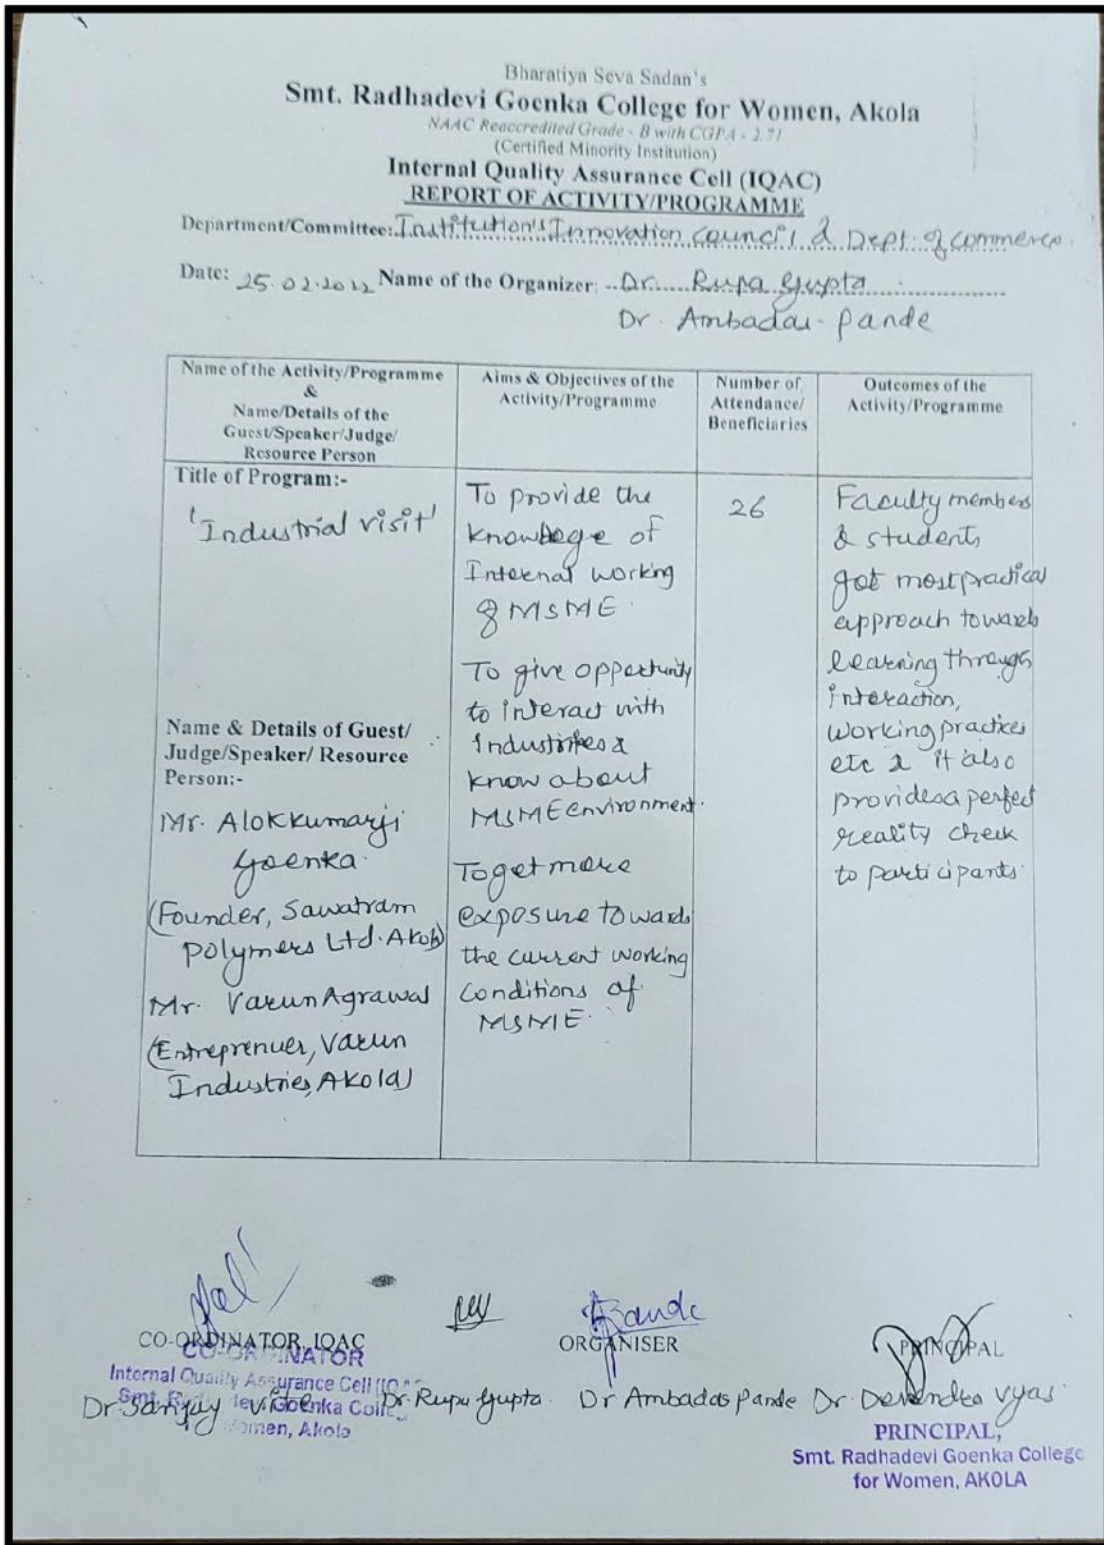 Bharatiya Seva Sadan's
Smt. Radhadevi Goenka College for Women, Akola
NAAC Reaccredited Grade - B with CGPA - 2.71
(Certified Minority Institution)
Internal Quality Assurance Cell (IQAC)
REPORT OF ACTIVITY/PROGRAMME
Department/Committee: Institution's Innovation council & Dept. of commerce.
Date: 25.02.2022 Name of the Organizer: Dr. Rupa Gupta
Dr. Ambadas Pande
Name of the Activity/Programme
&
Name/Details of the
Guest/Speaker/Judge/
Resource Person
Aims & Objectives of the
Activity/Programme
Number of
Attendance/
Beneficiaries
Outcomes of the
Activity/Programme
Title of Program:-
'Industrial visit'
Name & Details of Guest/
Judge/Speaker/ Resource
Person:-
Mr. Alokkumarji
Goenka.
(Founder, Sawatram
Polymers Ltd. Akola)
Mr. Varun Agrawal
(Entreprenuer, Varun
Industries, Akola)
To provide the
knowledge of
Internal working
of MSME.
To give oppertunity
to interact with
Industries &
know about
MSME environment.
To get more
exposure towards
the current working
conditions of
MSME.
26
Faculty members
& students
got most practical
approach towards
learning through
interaction,
working practices
etc & it also
provides a perfect
reality check
to participants.
CO-ORDINATOR, IQAC
ORGANISER
PRINCIPAL
CO-ORDINATOR
Internal Quality Assurance Cell (IQAC)
Smt. Goenka College
Women, Akola
Dr. Sanjay
Dr. Rupa Gupta.
Dr Ambadas Pande
Dr. Devendra Vyas.
PRINCIPAL,
Smt. Radhadevi Goenka College
for Women, AKOLA